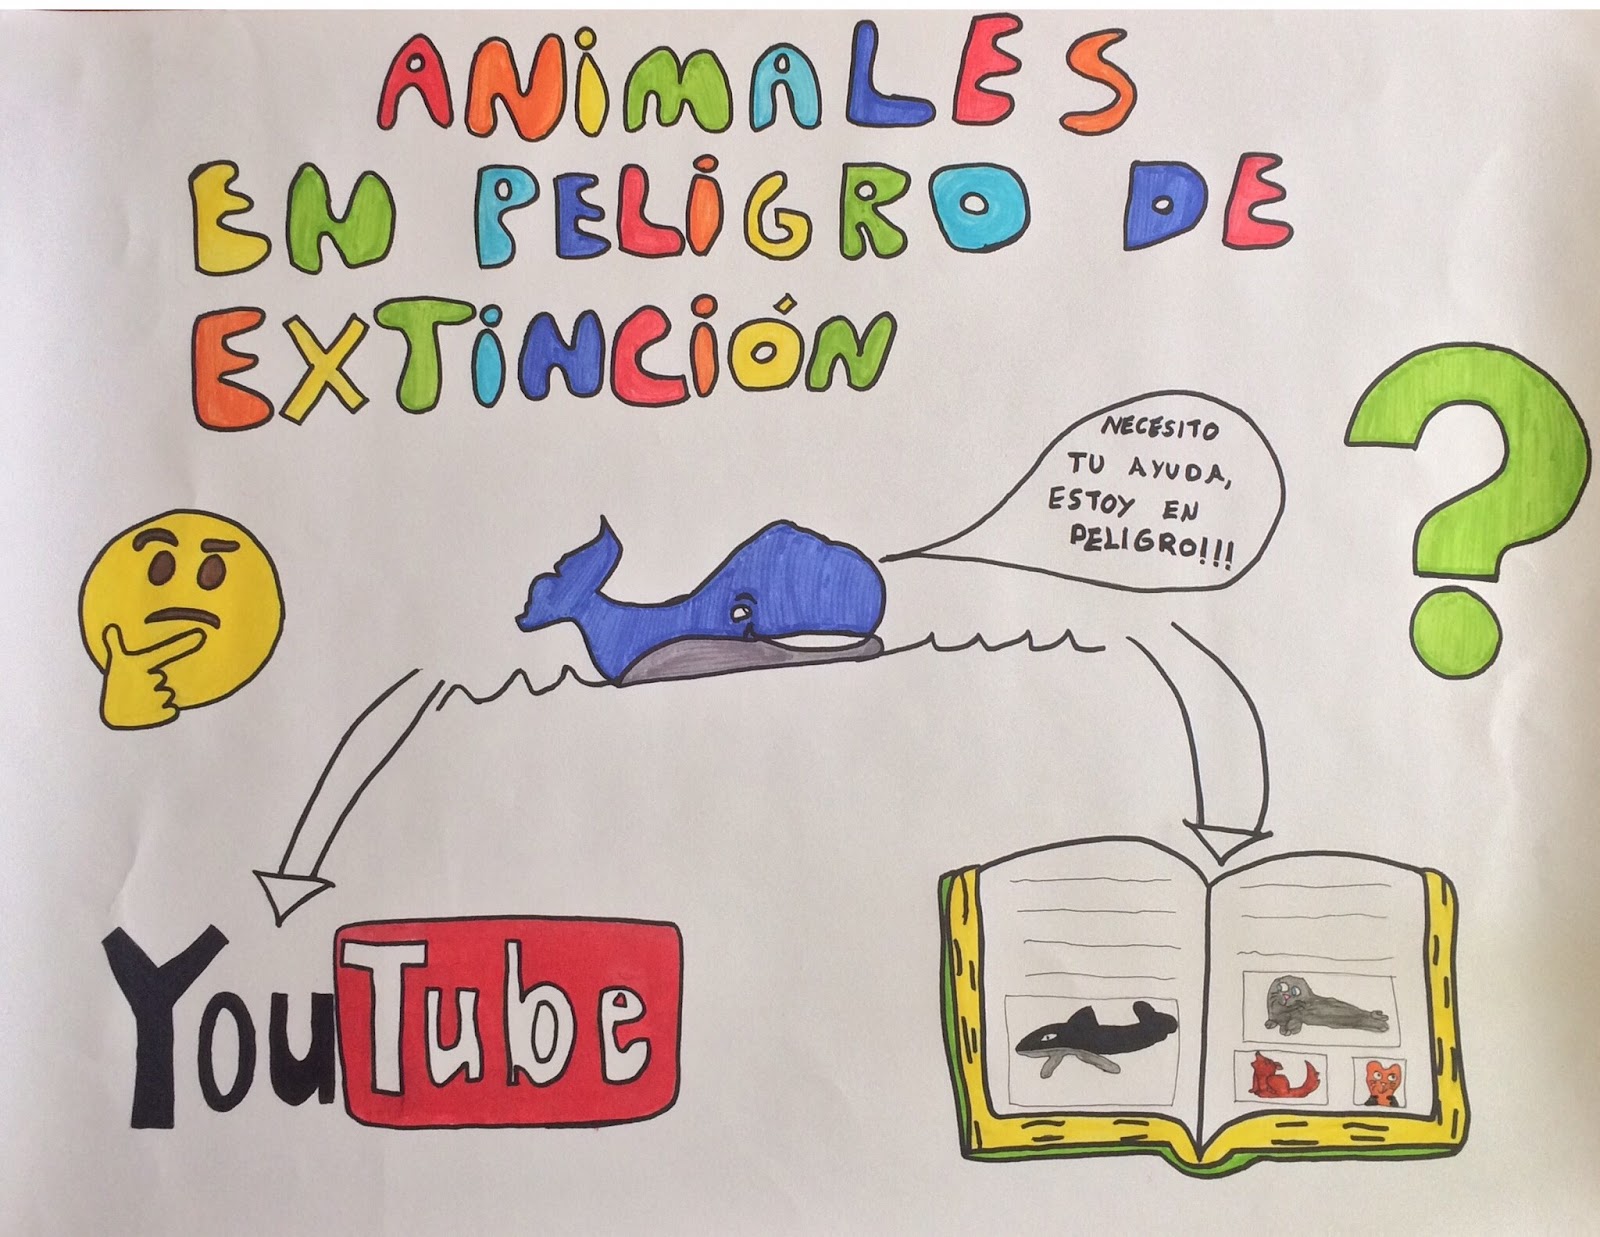 ANiMALES
EN PELiGRO DE
EXTiNCiÓN
NECESITO
TU AYUDA,
ESTOY EN
PELIGRO!!!
YouTube